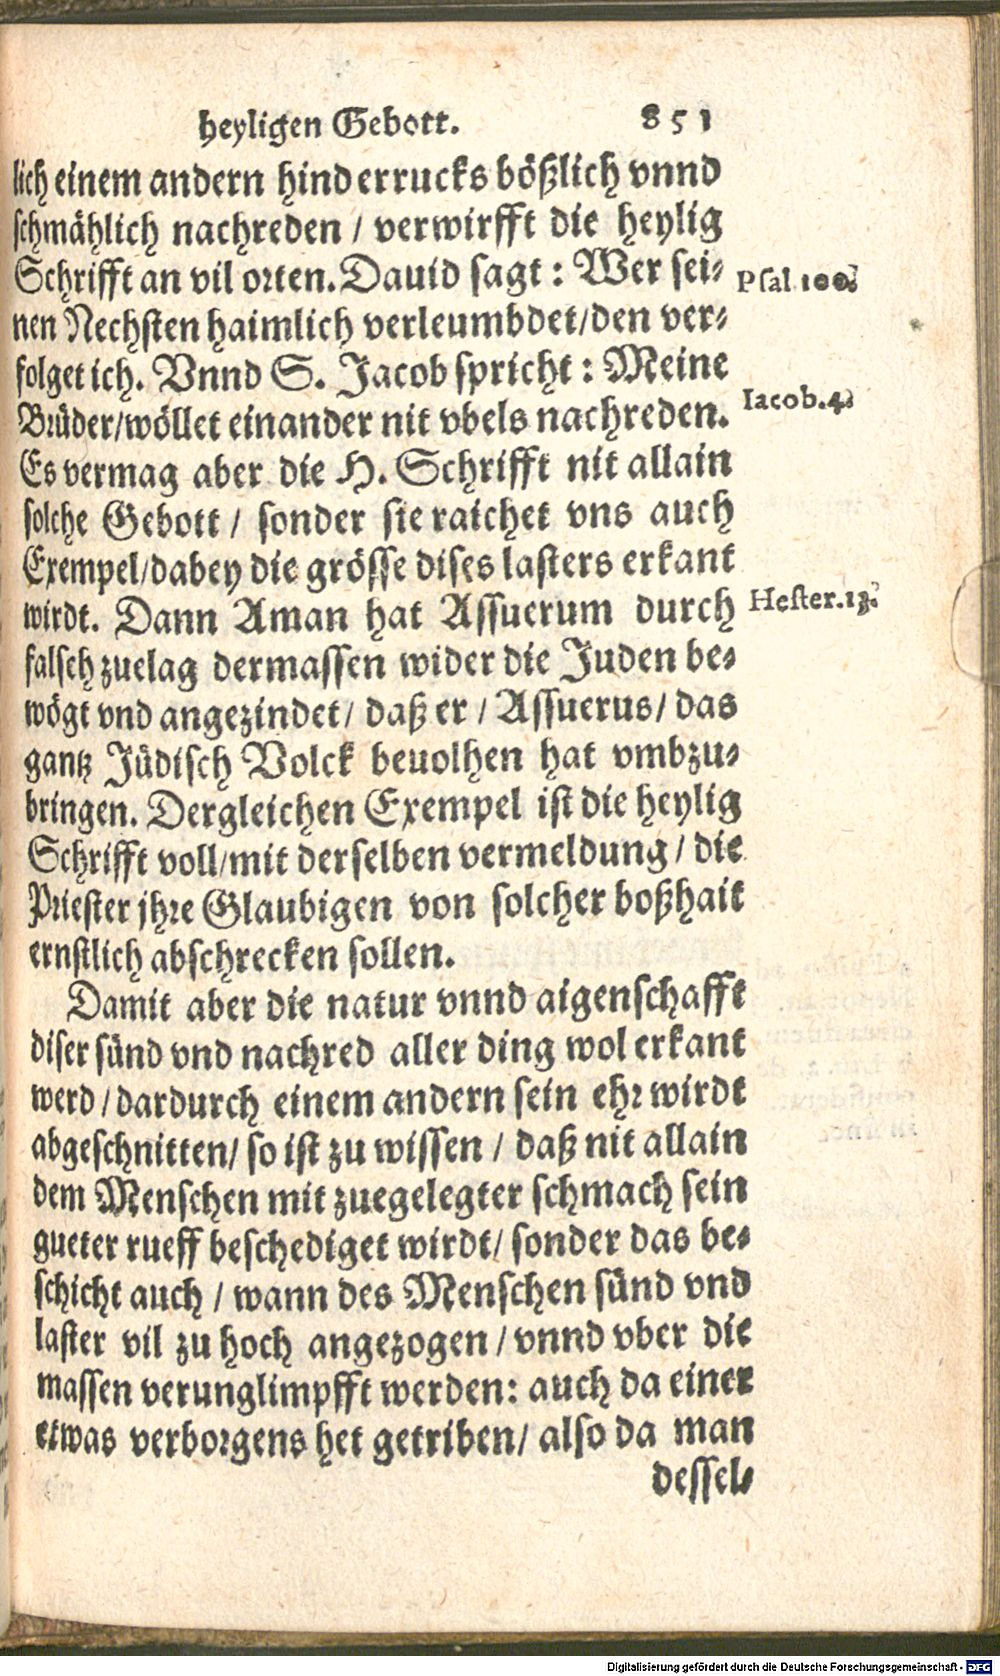 heyligen Gebott. 851
lich einem andern hinderrucks bößlich vnnd
schmählich nachreden / verwirfft die heylig
Schrifft an vil orten. Dauid sagt : Wer sei-
Psal. 100.
nen Nechsten haimlich verleumbdet/den ver-
folget ich. Vnnd S. Jacob spricht : Meine
Brüder/wöllet einander nit vbels nachreden.
Iacob.4.
Es vermag aber die H. Schrifft nit allain
solche Gebott / sonder sie raichet vns auch
Exempel/dabey die grösse dises lasters erkant
wirdt. Dann Aman hat Assuerum durch
Hester.13.
falsch zuelag dermassen wider die Juden be-
wögt vnd angezindet/ daß er / Assuerus/ das
gantz Jüdisch Volck beuolhen hat vmbzu-
bringen. Dergleichen Exempel ist die heylig
Schrifft voll/mit derselben vermeldung / die
Priester jhre Glaubigen von solcher boßhait
ernstlich abschrecken sollen.
Damit aber die natur vnnd aigenschafft
diser sünd vnd nachred aller ding wol erkant
werd / dardurch einem andern sein ehr wirdt
abgeschnitten/ so ist zu wissen / daß nit allain
dem Menschen mit zuegelegter schmach sein
gueter rueff beschediget wirdt/ sonder das be-
schicht auch / wann des Menschen sünd vnd
laster vil zu hoch angezogen / vnnd vber die
massen verunglimpfft werden: auch da einer
etwas verborgens het getriben/ also da man
dessel-
Digitalisierung gefördert durch die Deutsche Forschungsgemeinschaft - DFG